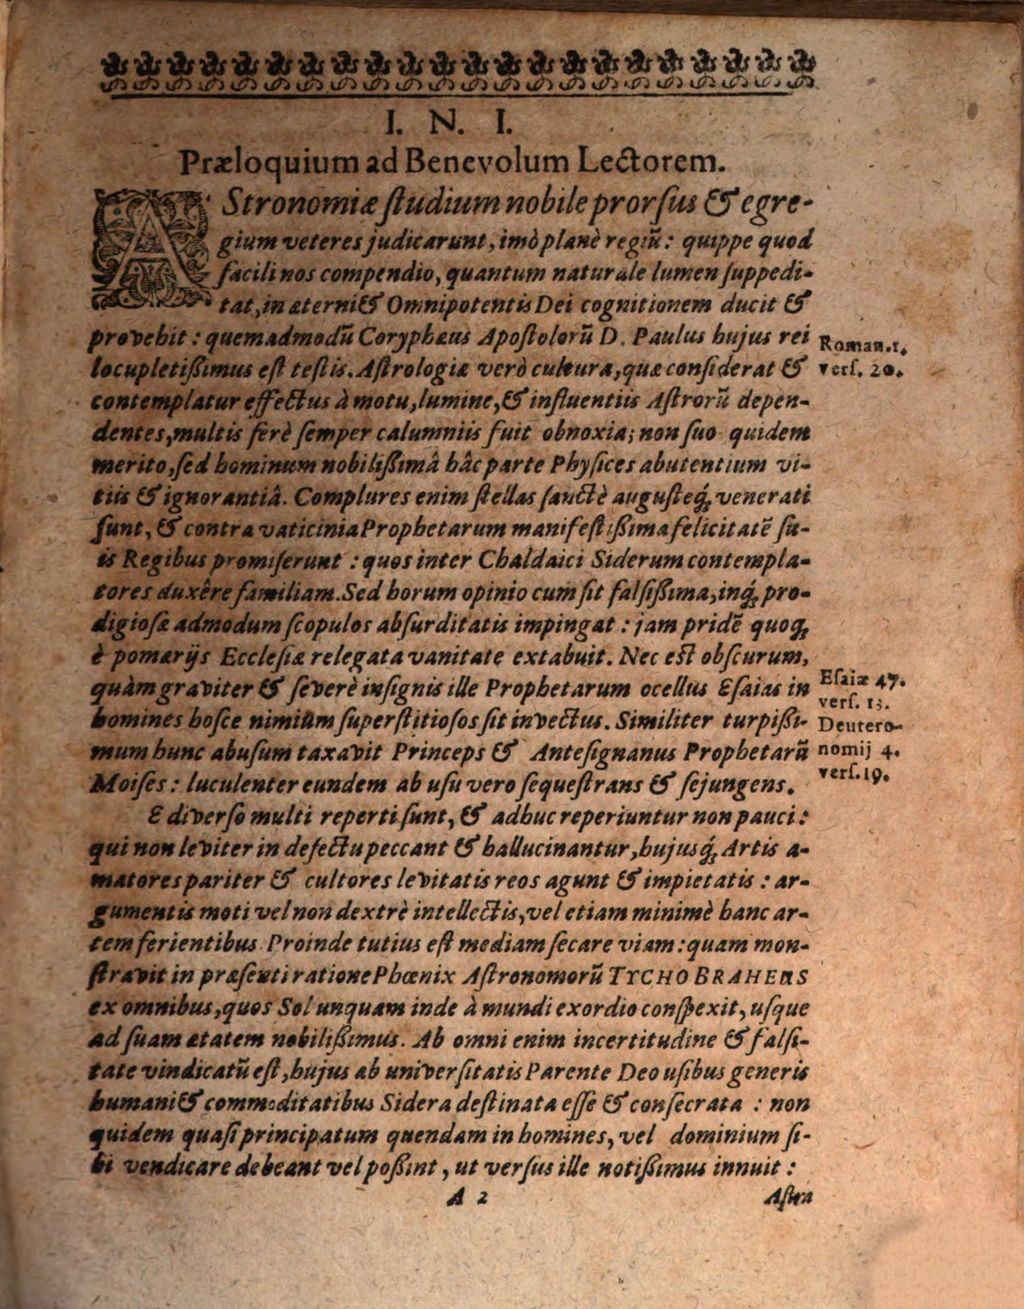 I. N. I.
Præloquium ad Benevolum Lectorem.
AStronomiæ ſtudium nobile prorſus & egre-
gium veteres judicarunt, imò planè regiũ: quippe quod
facili nos compendio, quantum naturale lumen ſuppedi-
tat, in æterni & Omnipotentis Dei cognitionem ducit &
provehit: quemadmodũ Coryphæus Apoſtolorũ D. Paulus hujus rei
Roman. 1.
locupletißimus eſt teſtis. Aſtrologiæ verò cultura, quæ conſiderat &
verſ. 20.
contemplatur effectus à motu, lumine, & influentiis Aſtrorũ depen-
dentes, multis ferè ſemper calumniis fuit obnoxia; non ſuo quidem
merito, ſed hominum nobilißimâ hâc parte Phyſices abutentium vi-
tiis & ignorantiâ. Complures enim ſtellas ſanctè auguſteq́; venerati
ſunt, & contra vaticinia Prophetarum manifeſtißima felicitatẽ ſu-
is Regibus promiſerunt: quos inter Chaldaici Siderum contempla-
tores duxêre familiam. Sed horum opinio cum ſit falſißima, inq́; pro-
digioſæ admodum ſcopulos abſurditatis impingat: jam pridẽ quoq́;
è pomærijs Eccleſiæ relegata vanitate extabuit. Nec eſt obſcurum,
quàm graviter & ſeverè inſignis ille Prophetarum ocellus Eſaias in
Eſaiæ 47.
verſ. 13.
homines hoſce nimiùm ſuperſtitioſos ſit invectus. Similiter turpißi-
Deutero-
mum hunc abuſum taxavit Princeps & Anteſignanus Prophetarũ
nomij 4.
Moiſes: luculenter eundem ab uſu vero ſequeſtrans & ſejungens.
verſ. 19.
E diverſo multi reperti ſunt, & adhuc reperiuntur non pauci:
qui non leviter in defectu peccant & hallucinantur, hujusq́; Artis a-
matores pariter & cultores levitatis reos agunt & impietatis: ar-
gumentis moti vel non dextrè intellectis, vel etiam minimè hanc ar-
tem ferientibus. Proinde tutius eſt mediam ſecare viam: quam mon-
ſtravit in præſenti ratione Phœnix Aſtronomorũ TYCHO BRAHEUS
ex omnibus, quos Sol unquam inde à mundi exordio conſpexit, uſque
ad ſuam ætatem nobilißimus. Ab omni enim incertitudine & falſi-
tate vindicatũ eſt, hujus ab univerſitatis Parente Deo uſibus generis
humani & commoditatibus Sidera deſtinata eſſe & conſecrata: non
quidem quaſi principatum quendam in homines, vel dominium ſi-
bi vendicare debeant vel poßint, ut verſus ille notißimus innuit:
A 2
Aſtra